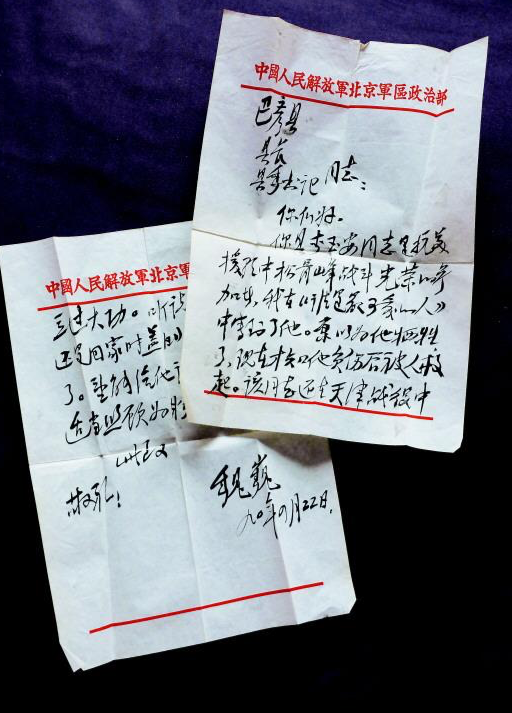 中國人民解放軍北京軍區政治部
巴彦县
县长
县委书记 同志:
你们好。
你县李玉安同志是抗美
援朝中松骨峰战斗光荣的参
加者,我在《谁是最可爱的人》
中写到了他。原以为他牺牲
了,现在知他负伤后被人救
起。该同志还在天津战役中
中國人民解放軍北京軍
立过大功。听说
还是回家时盖的
了。望能给他
适当照顾
此致
敬礼!
魏巍
九〇年 月22日.